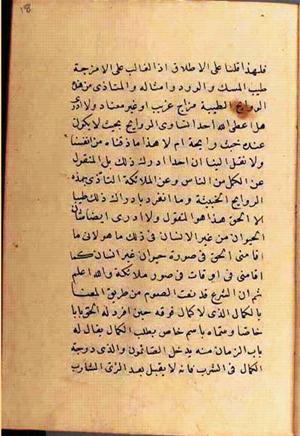 ١٨
فلهذا قلنا على الاطلاق اذ الغالب على الامزجة
طيب المسك والورد وامثاله والمتاذى من هذه
الروايح الطيبة مزاج غريب او غير معتاد ولا ادرى
هل اعطى الله احدا تساوى الروايح بحيث لا يكون
عنده خبث رايحة ام لا هذا ما ذقناه من انفسنا
ولا نقل الينا ان احدا ادرك ذلك بل المنقول
عن الكمل من الناس وعن الملائكة التأذى بهذه
الروايح الخبيثة وما انفرد بادراك ذلك طيبا
الا الحق هذا هو المنقول ولا ادرى ايضا شان
الحيوان من غير الانسان فى ذلك ما هو لانى ما
اقامنى الحق فى صورة حيوان غير انسان كما
اقامنى فى اوقات فى صور ملائكة والله اعلم
ثم ان الشرع قد نعت الصوم من طريق المعنى
بالكمال الذى لا كمال فوقه حين افرد له الحق بابا
خاصا وسماه باسم خاص يطلب الكمال يقال له
باب الريان منه يدخل الصائمون والرى درجة
الكمال فى الشرب فانه لا يقبل بعد الرى الشارب